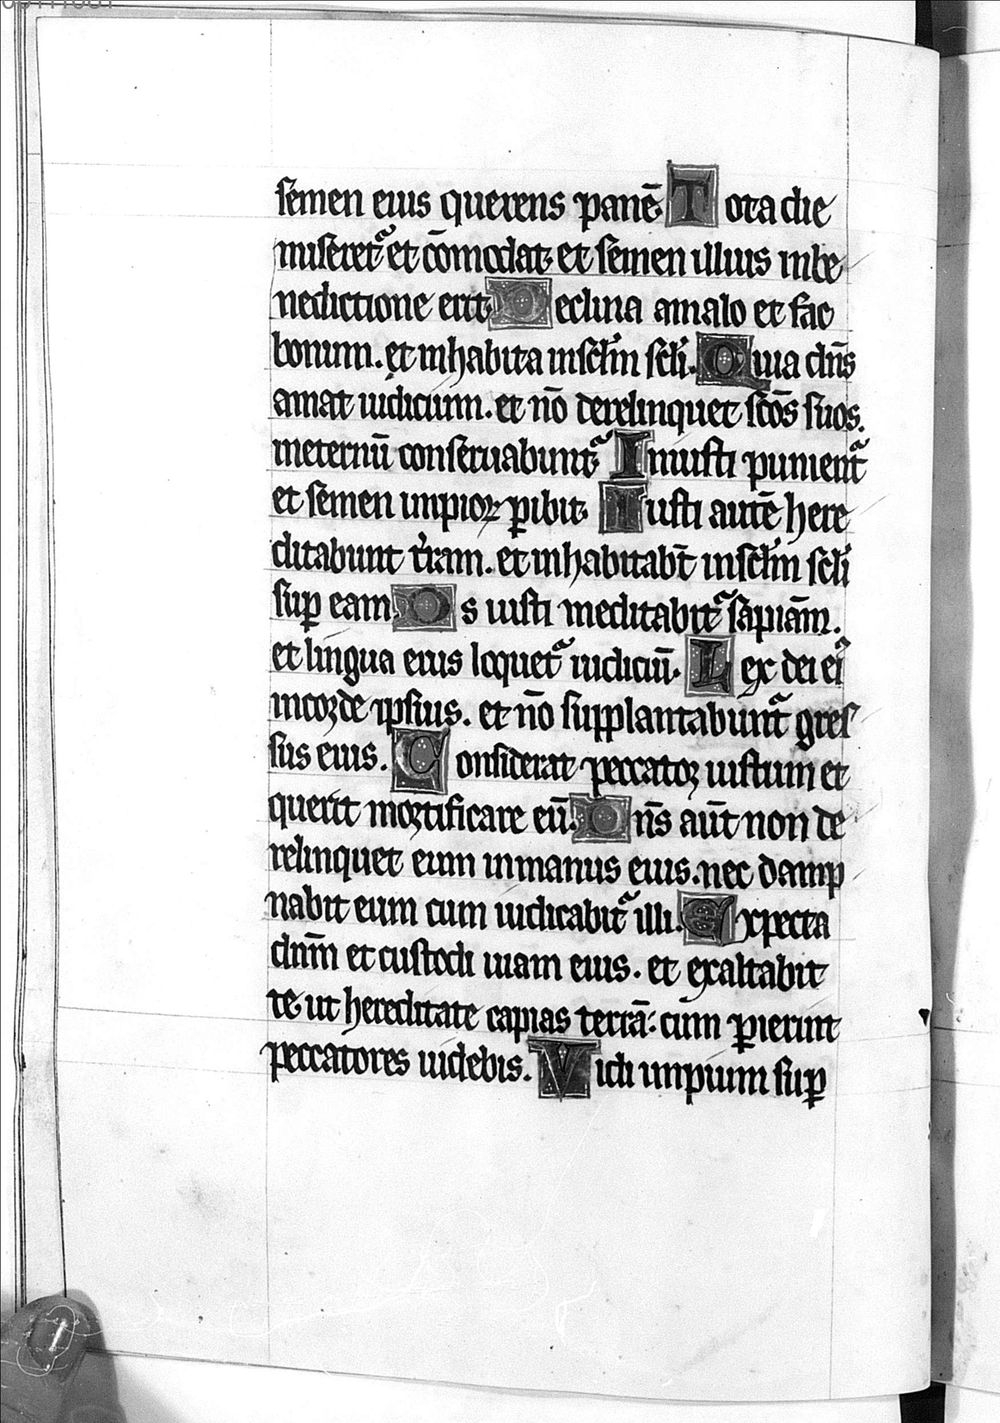 semen eius querens panē. Tota die
miseret᷑ et cōmodat. et semen illius inbe
nedictione erit. Declina amalo et fac
bonum. et inhabita insclm̄ scli. Quia dn̄s
amat iudicium. et nō derelinquet scōs suos.
ineternū conseruabunt᷑ Iniusti punient᷑
et semen impioꝝ ꝑibit. Iusti autē here
ditabunt t̄ram. et inhabitabt̄ insclm̄ scli
suꝑ eam. Os iusti meditabit᷑ sapiām.
et lingua eius loquet᷑ iudiciū. Lex dei ei᷒
incorde ipsius. et nō supplantabunt᷑ gres
sus eius. Considerat peccator iustum et
querit mortificare eū. Dn̄s aūt non de
relinquet eum inmanus eius. nec damp
nabit eum cum iudicabit᷑ illi. Expecta
dnm̄ et custodi uiam eius. et exaltabit
te ut hereditate capias terrā: cum ꝑierint
peccatores uidebis. Vidi impium suꝑ